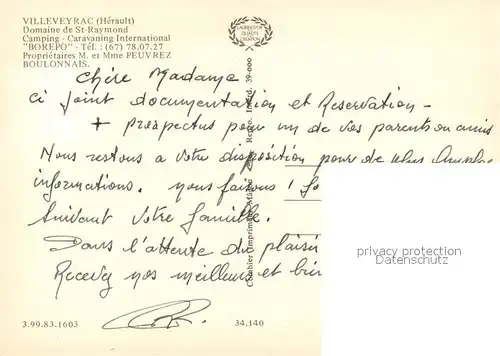 VILLEVEYRAC (Hérault)
Domaine de St-Raymond
Camping - Caravaning International
"BOREPO" - Tél. : (67) 78.07.27
Propriétaires M. et Mme PEUVREZ
BOULONNAIS.
LAUREAT DE QUALITE CREATION
Combier Imprimeur Mâcon
Repro. Interd. 39-000
Chère Madame
ci joint documentation et Reservation -
+ prospectus pour un de vos parents ou amis
Nous restons a votre disposition pour de plus Amples
informations. nous faisons 1
suivant votre famille.
Dans l'attente du plaisir
Recevez nos meilleurs et
privacy protection
www.oldthing.de
3.99.83.1603
34.140